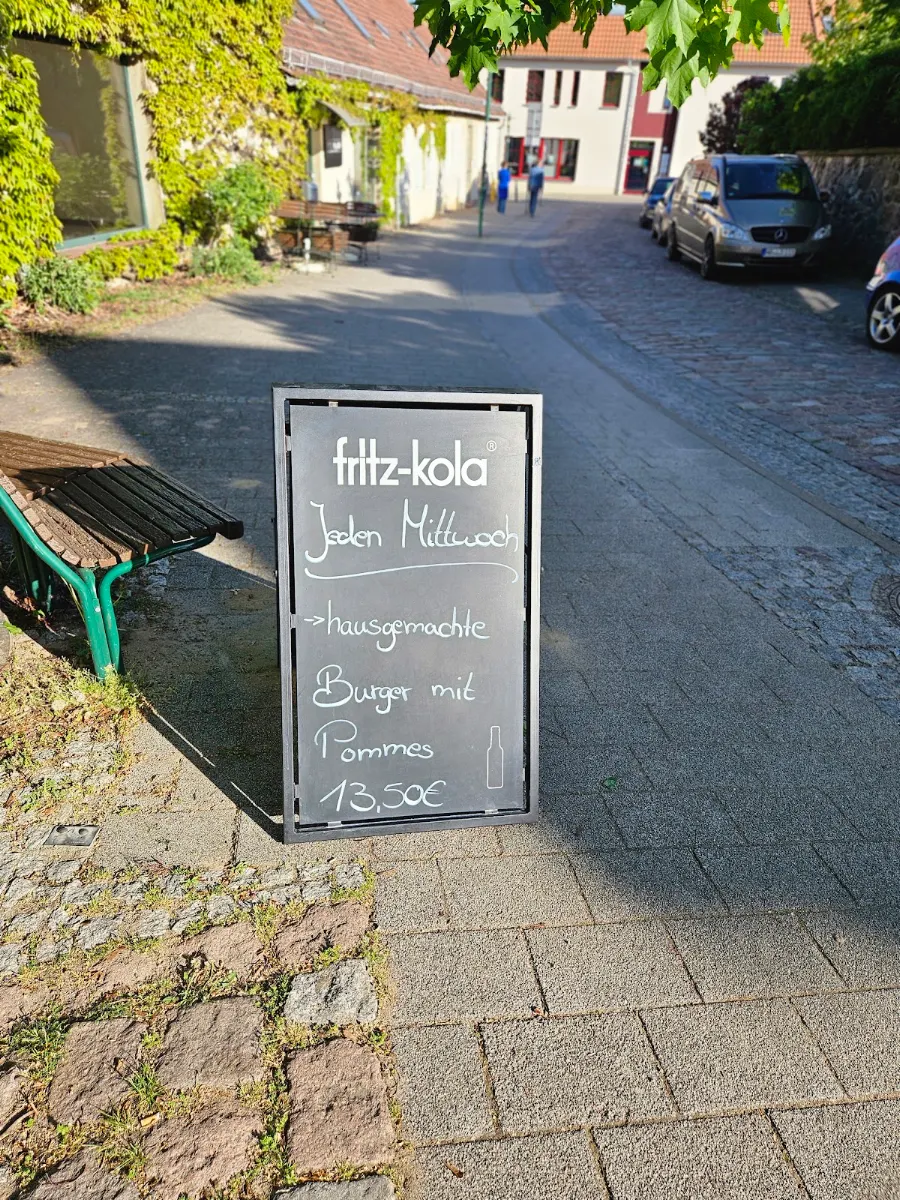 fritz-kola®
Jeden Mittwoch
→hausgemachte
Burger mit
Pommes
13,50€